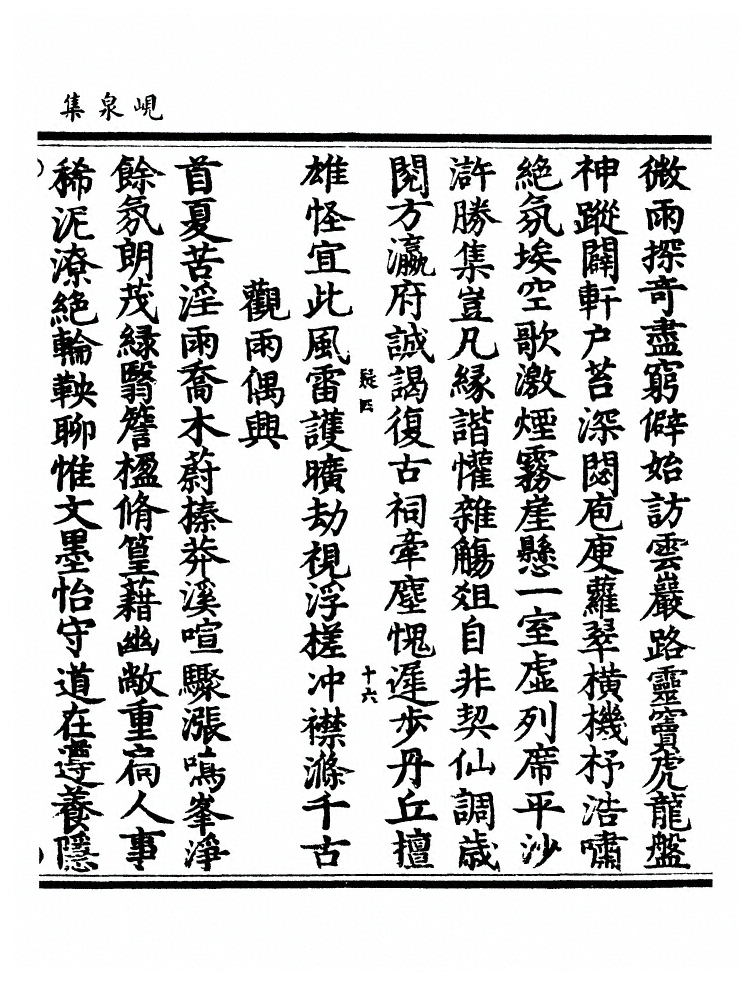 峴泉集
微雨探奇盡窮僻始訪雲巖路靈竇虎龍盤
神蹤闢軒户苔深閟庖庾蘿翠橫機杼浩嘯
絶氛埃空歌激煙霧崖懸一室虛列席平沙
滸勝集豈凡緣諧懽雜觴俎自非契仙調歳
閱方瀛府誠謁復古祠牽塵愧遲步丹丘擅
疑四
十六
雄怪宜此風雷護曠劫視浮槎冲襟滌千古
觀雨偶興
首夏苦淫雨喬木蔚榛莽溪喧驟漲鳴峯淨
餘氛朗茂緑翳簷楹脩篁藉幽敞重扃人事
稀泥潦絶輪鞅聊惟文墨怡守道在遵養隱